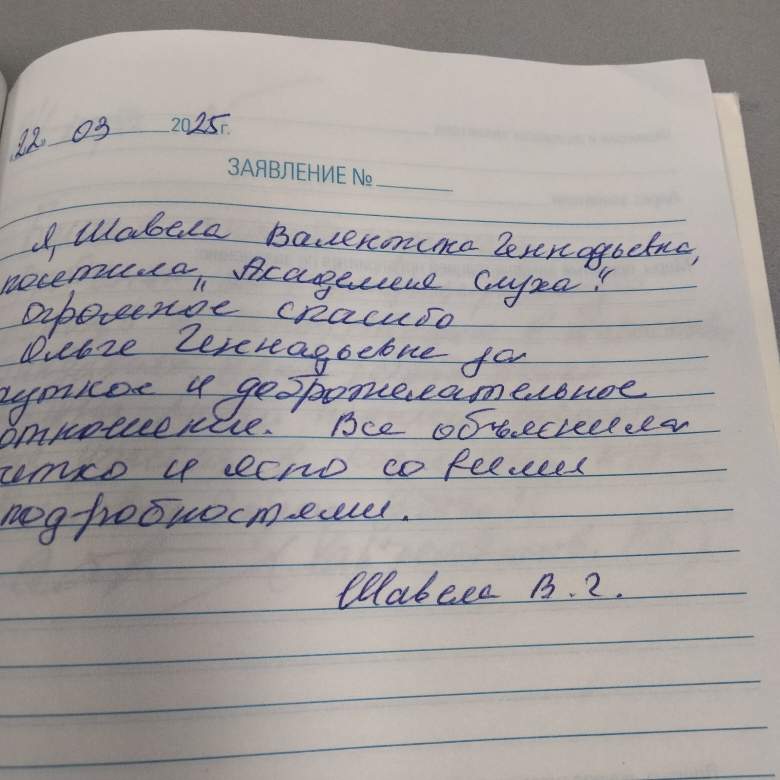 22. 03 2025 г.
ЗАЯВЛЕНИЕ №
Я, Шавела Валентина Геннадьевна,
посетила "Академия Слуха".
Огромное спасибо
Ольге Геннадьевне за
чуткое и доброжелательное
отношение. Все объяснила
четко и ясно со всеми
подробностями.
Шавела В. Г.